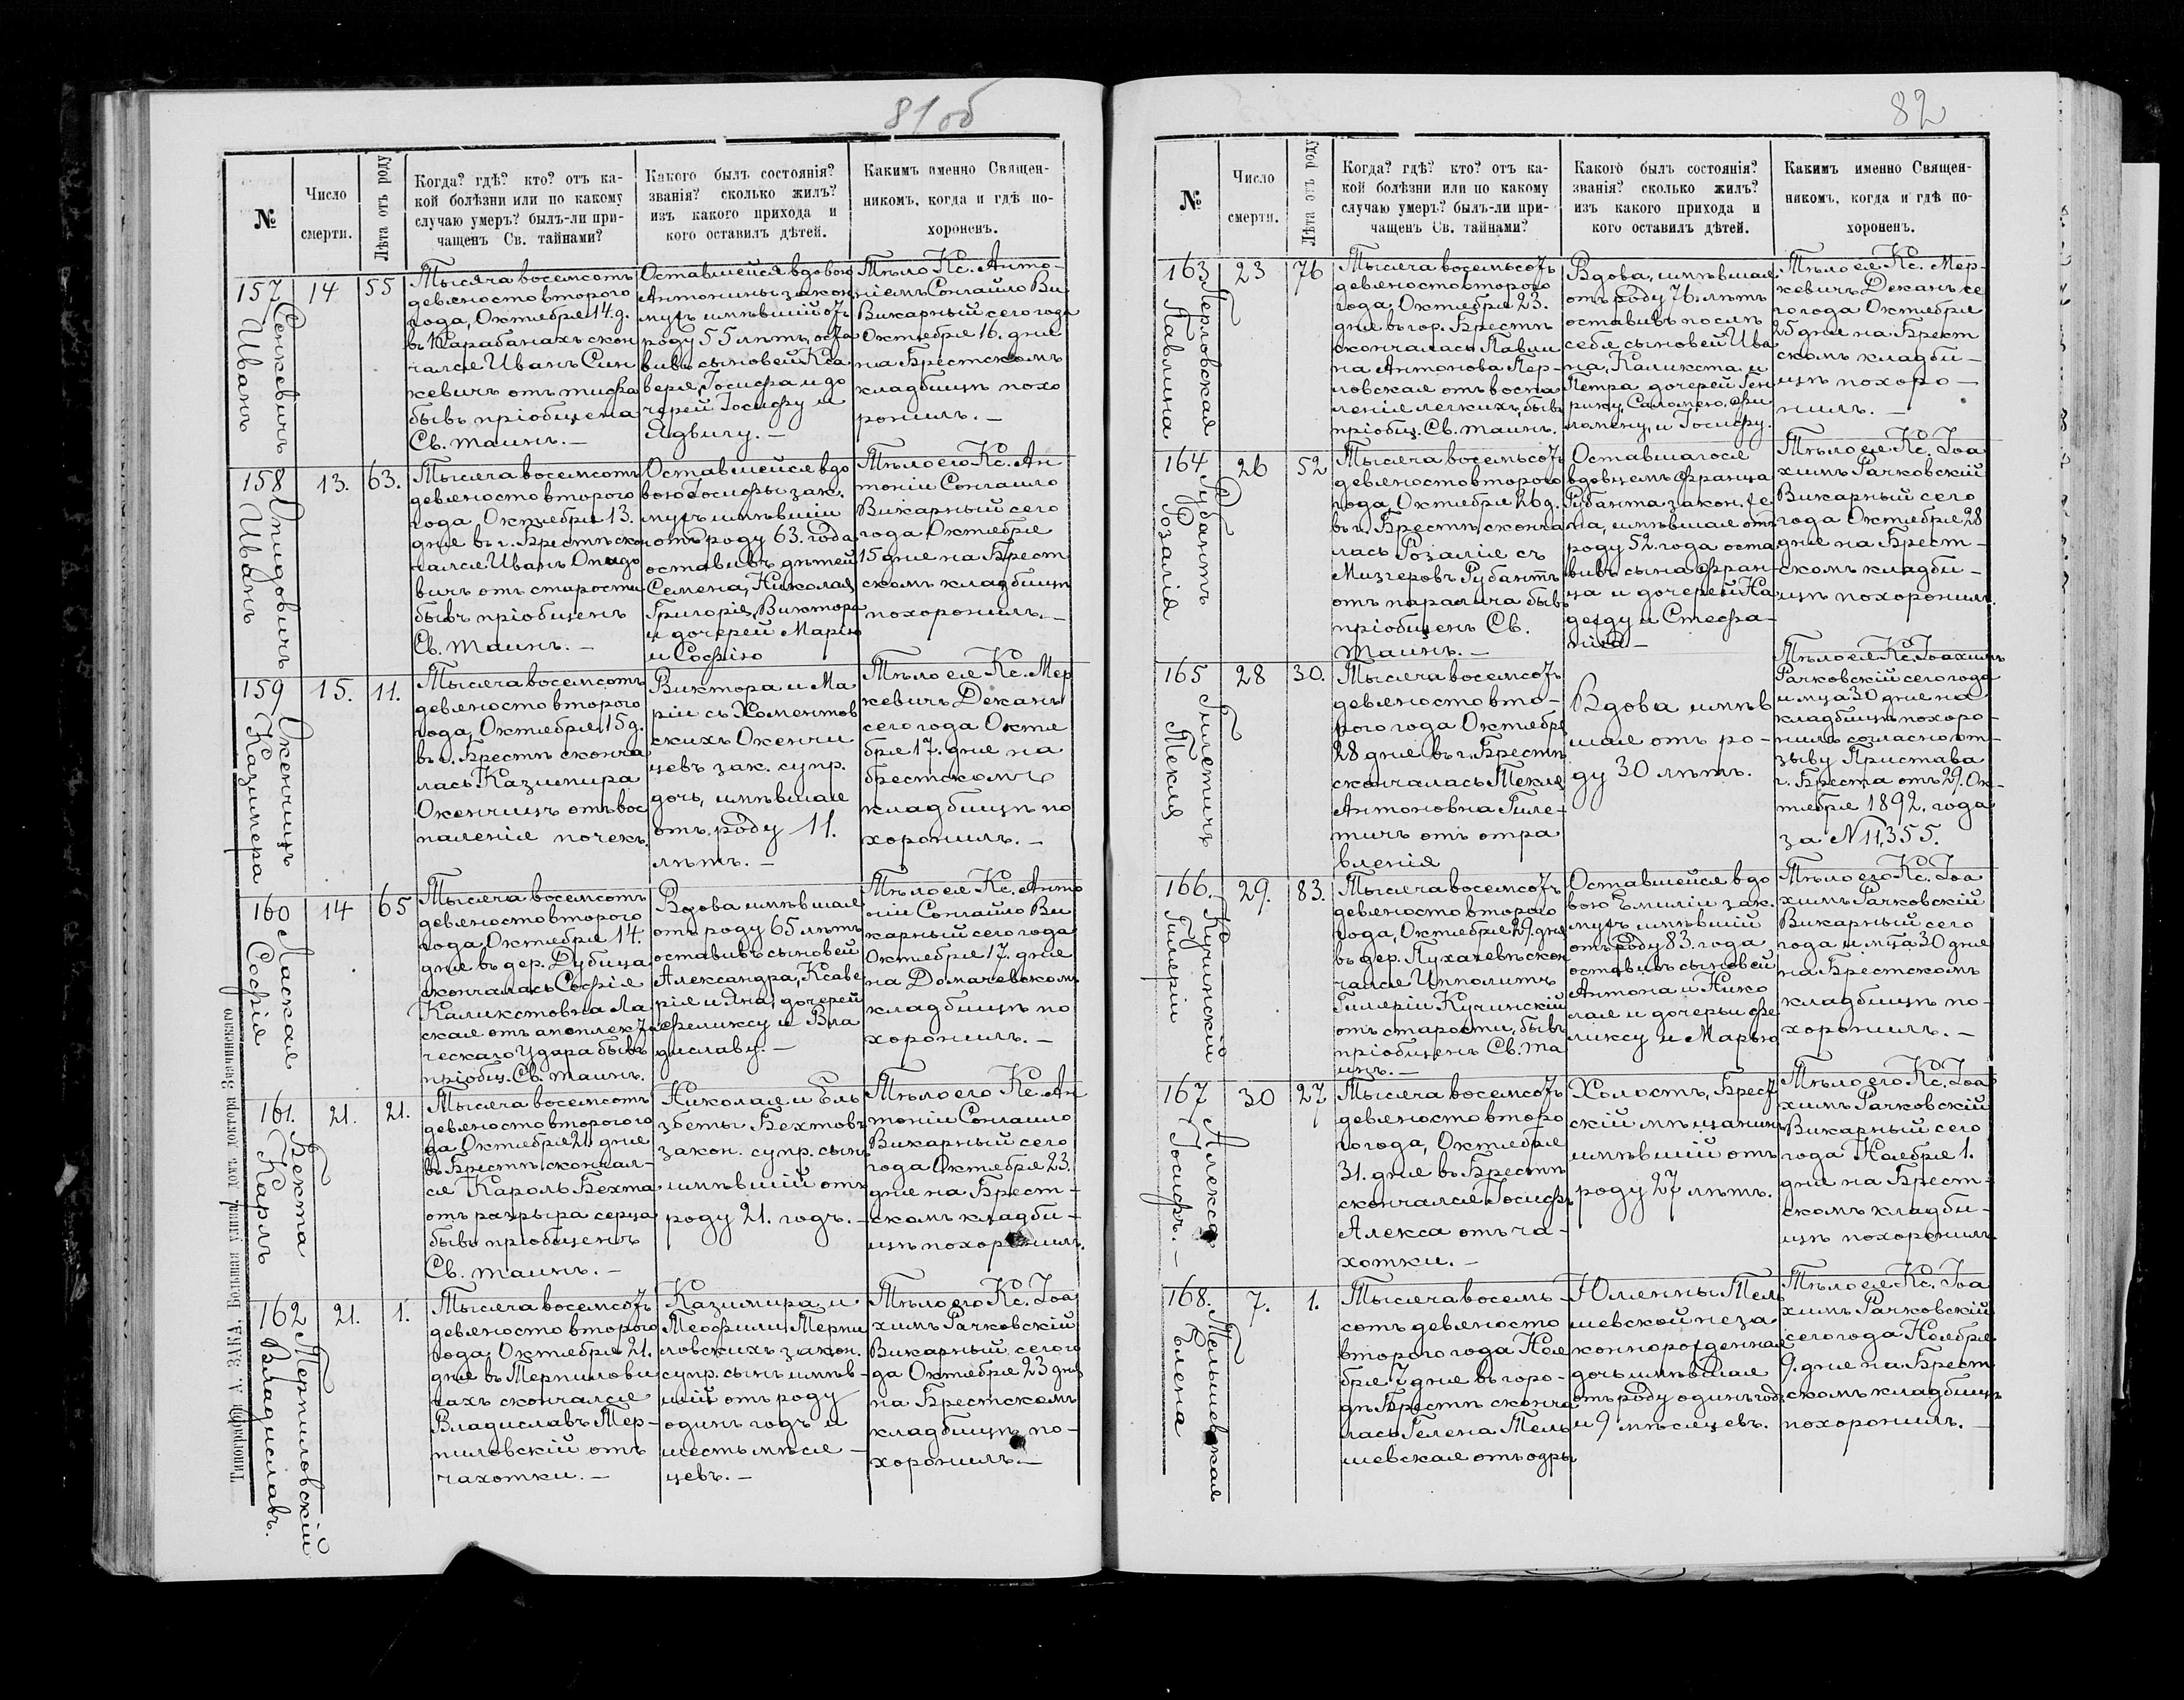 81 об
№
Число
смерти.
Лѣта отъ роду
Когда? гдѣ? кто? отъ ка-
кой болѣзни или по какому
случаю умеръ? былъ-ли при-
чащенъ Св. тайнами?
Какого былъ состоянія?
званія? сколько жилъ?
изъ какого прихода и
кого оставилъ дѣтей.
Какимъ именно Священ-
никомъ, когда и гдѣ по-
хороненъ.
157
Сенкевичъ
Иванъ
14
55
Тысяча восемсотъ
девяносто второго
года, Октября 14. д.
въ Карабанахъ скон
чался Иванъ Син
кевичъ отъ тифа
бывъ пріобщена
Св. таинъ. —
Оставшейся вдовою
Антонины закон
мужъ имѣвшій отъ
роду 55 лѣтъ, оста
вивъ сыновей Кса
верія, Іосифа и до
черей Іосифу и
Ядвигу. —
Тѣло Кс. Анто-
ніемъ Сонгайло Ви
Викарный сего года
Октября 16. дня
на Брестскомъ
кладбищѣ похо
ронилъ. —
158
Опидовичъ
Иванъ
13.
63.
Тысяча восемсотъ
девяносто второго
года, Октября 13.
дня въ г. Брестѣ скон
чался Иванъ Опидо
вичъ отъ старости
бывъ пріобщенъ
Св. таинъ. —
Оставшейся вдо
вою Іосифы зак.
мужъ имѣвшій
отъ роду 63. года
оставивъ дѣтей
Семена, Николая
Григорія, Виктора
и дочерей Марію
и Софію
Тѣло его Кс. Ан
тоніи Сонгайло
Викарный сего
года Октября
15 дня на Брест
скомъ кладбищѣ
похоронилъ. —
159
Окенчицъ
Казимера
15.
11.
Тысяча восемсотъ
девяносто второго
года, Октября 15 д.
въ г. Брестѣ сконча
лась Казимира
Окенчицъ отъ вос
паленія почекъ.
Виктора и Ма
ріи съ Хоментов
скихъ Окенчи
цевъ зак. супр.
дочь, имѣвшая
отъ роду 11.
лѣтъ. —
Тѣло ея Кс. Мер
кевичъ Деканъ
сего года Октя
бря 17. дня на
брестскомъ
кладбищѣ по
хоронилъ. —
160
Лаская
Софія
14
65
Тысяча восемсотъ
девяносто второго
года, Октября 14.
дня въ дер. Дубица
скончалась Софія
Каликстовна Ла
ская отъ апоплекти
ческаго удара бывъ
пріобщ. Св. таинъ.
Вдова имѣвшая
отъ роду 65 лѣтъ
оставивъ сыновей
Александра, Ксаве
рія и Яна, дочерей
Феликсу и Вла
диславу. —
Тѣло ея Кс. Анто
ній Сонгайло Ви
карный сего года
Октября 17. дня
на Домачевскомъ
кладбищѣ по
хоронилъ. —
161.
Бехта
Карлъ
21.
21.
Тысяча восемсотъ
девяносто второго го
да Октября 21. дня
въ Брестѣ скончал-
ся Кароль Бехта
отъ разрыва серца
бывъ пріобщенъ
Св. таинъ. —
Николая и Ель
збеты Бехтовъ
закон. супр. сынъ
имѣвшій отъ
роду 21. годъ. —
Тѣло его Кс. Ан
тоніи Сонгайло
Викарный сего
года Октября 23.
дня на Брест-
скомъ кладби-
щѣ похоронилъ.
162
Терпиловскій
Владиславъ.
21.
1.
Тысяча восемсотъ
девяносто второго
года, Октября 21.
дня въ Терпилови
чахъ скончался
Владиславъ Тер-
пиловскій отъ
чахотки. —
Казимира и
Теофили Терпи
ловскихъ закон.
супр. сынъ имѣв-
шій отъ роду
одинъ годъ и
шесть мѣся-
цевъ. —
Тѣло его Кс. Іоа
химъ Рачковскій
Викарный сего го
да Октября 23 дня
на Брестскомъ
кладбищѣ по-
хоронилъ. —
Типографія А. ЗАКА, Большая улица, домъ доктора Значинскаго
82
№
Число
смерти.
Лѣта отъ роду
Когда? гдѣ? кто? отъ ка-
кой болѣзни или по какому
случаю умеръ? былъ-ли при-
чащенъ Св. тайнами?
Какого былъ состоянія?
званія? сколько жилъ?
изъ какого прихода и
кого оставилъ дѣтей.
Какимъ именно Священ-
никомъ, когда и гдѣ по-
хороненъ.
163
Перловская
Павлина
23
76
Тысяча восемьсотъ
девяносто второго
года, Октября 23.
дня въ гор. Брестѣ
скончалась Павли
на Антонова Пер-
ловская отъ воспа
ленія легкихъ, бывъ
пріобщ. Св. таинъ.
Вдова, имѣвшая
отъ роду 76. лѣтъ
оставивъ послѣ
себя сыновей Ива
на, Каликста и
Петра дочерей Ген
рику, Саломею, Фи
ломену, и Іосифу.
Тѣло ея Кс. Мер-
кевичъ Деканъ се
го года Октября
25 дня на Брест
скомъ кладби-
щѣ похоро-
нилъ. —
164
Рубантъ
Розалія
26
52
Тысяча восемьсотъ
девяносто второго
года, Октября 26 д.
въ г. Брестѣ, сконча
лась Розалія съ
Мизгеровъ Рубантъ
отъ паралича бывъ
пріобщенъ Св.
таинъ. —
Оставшагося
вдовцемъ Франца
Рубанта закон. же
на, имѣвшая отъ
роду 52. года оста
вивъ сына Фран-
ца и дочерей На
дежду и Стефа-
нію —
Тѣло ея Кс. Іоа
химъ Рачковскій
Викарный сего
года Октября 28
дня на Брест-
скомъ кладби-
щѣ похоронилъ.
165
Гилетичъ
Текля
28
30.
Тысяча восемсотъ
девяносто вто-
рого года Октября
28 дня въ г. Брестѣ
скончалась Текля
Антоновна Гиле-
тичъ отъ отра
вленія
Вдова имѣв
шая отъ ро-
ду 30 лѣтъ.
Тѣло ея Кс. Іоахимъ
Рачковскій сего года
и мца 30 дня на
кладбищѣ похоро-
нилъ согласно от-
зыву Пристава
г. Бреста отъ 29. Ок-
тября 1892. года
за N 11,355.
166.
Кучинскій
Гилерій
29.
83.
Тысяча восемсотъ
девяносто второго
года, Октября 29. дня
въ дер. Пухачевѣ скон
чался Ипполитъ
Гилеріи Кучинскій
отъ старости, бывъ
пріобщенъ Св. Та
инъ. —
Оставшейся вдо
вою Емиліи зак.
мужъ имѣвшій
отъ роду 83. года
оставилъ сыновей
Антона и Нико
лая и дочерьи Фе
ликсу и Марью
Тѣло его Кс. Іоа
химъ Рачковскій
Викарный сего
года и мца 30 дня
на Брестскомъ
кладбищѣ по-
хоронилъ. —
167
Алекса
Іосифъ. —
30
27
Тысяча восемсотъ
девяносто второ
го года, Октября
31. дня въ Брестѣ
скончался Іосифъ
Алекса отъ ча-
хотки. —
Холостъ, Брест
скій мѣщанинъ
имѣвшій отъ
роду 27 лѣтъ.
Тѣло его Кс. Іоа
химъ Рачковскій
Викарный сего
года Ноября 1.
дня на Брест-
скомъ кладби-
щѣ похоронилъ.
168.
Тельшевская
Елена
7.
1.
Тысяча восемь-
сотъ девяносто
второго года Ноя
бря 7 дня въ горо-
дѣ Брестѣ сконча
лась Гелена Тель
шевская отъ одры
Юліенны Тель
шевской неза
коннорожденная
дочь имѣвшая
отъ роду одинъ годъ
и 9 мѣсяцевъ.
Тѣло ея Кс. Іоа
химъ Рачковскій
сего года Ноября
9. дня на Брест
скомъ кладбищѣ
похоронилъ. —